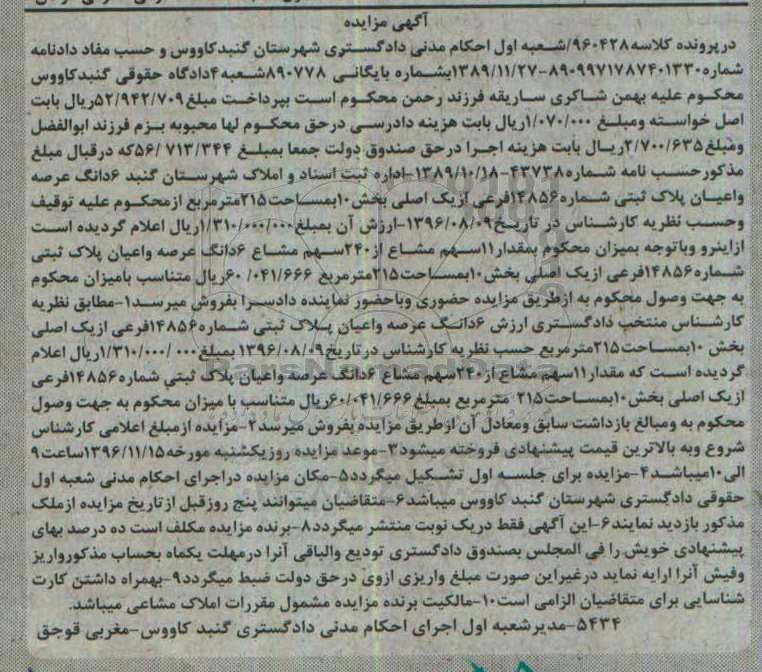 آگهی مزایده
درپرونده کلاسه۹۶۰۴۲۸/شعبه اول احکام مدنی دادگستری شهرستان گنبدکاووس و حسب مفاد دادنامه
شماره۸۹۰۹۹۷۱۷۸۷۴۰۱۳۳۰-۱۳۸۹/۱۱/۲۷بشماره بایگانی ۸۹۰۷۷۸شعبه۴دادگاه حقوقی گنبدکاووس
محکوم علیه بهمن شاکری ساریقه فرزند رحمن محکوم است بپرداخت مبلغ۵۲/۹۴۲/۷۰۹ریال بابت
اصل خواسته ومبلغ ۱/۰۷۰/۰۰۰ریال بابت هزینه دادرسی درحق محکوم لها محبوبه بزم فرزند ابوالفضل
ومبلغ۲/۷۰۰/۶۳۵ریال بابت هزینه اجرا درحق صندوق دولت جمعا بمبلغ ۵۶/۷۱۳/۳۴۴که درقبال مبلغ
مذکورحسب نامه شماره۴۳۷۳۸-۱۳۸۹/۱۰/۱۸-اداره ثبت اسناد و املاک شهرستان گنبد ۶دانگ عرصه
واعیان پلاک ثبتی شماره۱۴۸۵۶فرعی ازیک اصلی بخش۱۰بمساحت۲۱۵مترمربع ازمحکوم علیه توقیف
وحسب نظریه کارشناس در تاریخ۱۳۹۶/۰۸/۰۹-ارزش آن بمبلغ۱/۳۱۰/۰۰۰/۰۰۰ریال اعلام گردیده است
ازاینرو وباتوجه بمیزان محکوم بمقدار۱۱سهم مشاع از۲۴۰سهم مشاع ۶دانگ عرصه واعیان پلاک ثبتی
شماره۱۴۸۵۶فرعی ازیک اصلی بخش۱۰بمساحت۲۱۵مترمربع ۶۰/۰۴۱/۶۶۶ریال متناسب بامیزان محکوم
به جهت وصول محکوم به ازطریق مزایده حضوری وباحضور نماینده دادسرا بفروش میرسد۱-مطابق نظریه
کارشناس منتخب دادگستری ارزش ۶دانگ عرصه واعیان پلاک ثبتی شماره۱۴۸۵۶فرعی ازیک اصلی
بخش ۱۰بمساحت۲۱۵مترمربع حسب نظریه کارشناس درتاریخ۱۳۹۶/۰۸/۰۹بمبلغ۱/۳۱۰/۰۰۰/۰۰۰ریال اعلام
گردیده است که مقدار۱۱سهم مشاع از۲۴۰سهم مشاع ۶دانگ عرصه واعیان پلاک ثبتی شماره۱۴۸۵۶فرعی
ازیک اصلی بخش۱۰بمساحت۲۱۵ مترمربع بمبلغ۶۰/۰۴۱/۶۶۶ریال متناسب با میزان محکوم به جهت وصول
محکوم به ومبالغ بازداشت سابق ومعادل آن ازطریق مزایده بفروش میرسد۲-مزایده ازمبلغ اعلامی کارشناس
شروع وبه بالاترین قیمت پیشنهادی فروخته میشود۳-موعد مزایده روزیکشنبه مورخه۱۳۹۶/۱۱/۱۵ساعت۹
الی۱۰میباشد۴-مزایده برای جلسه اول تشکیل میگردد۵-مکان مزایده دراجرای احکام مدنی شعبه اول
حقوقی دادگستری شهرستان گنبد کاووس میباشد۶-متقاضیان میتوانند پنج روزقبل ازتاریخ مزایده ازملک
مذکور بازدید نمایند۶-این آگهی فقط دریک نوبت منتشر میگردد۸-برنده مزایده مکلف است ده درصد بهای
پیشنهادی خویش را فی المجلس بصندوق دادگستری تودیع والباقی آنرا درمهلت یکماه بحساب مذکورواریز
وفیش آنرا ارایه نماید درغیراین صورت مبلغ واریزی ازوی درحق دولت ضبط میگردد۹-بهمراه داشتن کارت
شناسایی برای متقاضیان الزامی است۱۰-مالکیت برنده مزایده مشمول مقررات املاک مشاعی میباشد.
۵۴۳۴-مدیرشعبه اول اجرای احکام مدنی دادگستری گنبد کاووس-مغربی قوجق